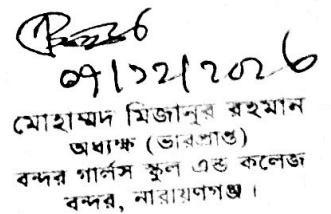 ০৭/১২/২০২৬
মোহাম্মদ মিজানুর রহমান
অধ্যক্ষ (ভারপ্রাপ্ত)
বন্দর গার্লস স্কুল এন্ড কলেজ
বন্দর, নারায়ণগঞ্জ।